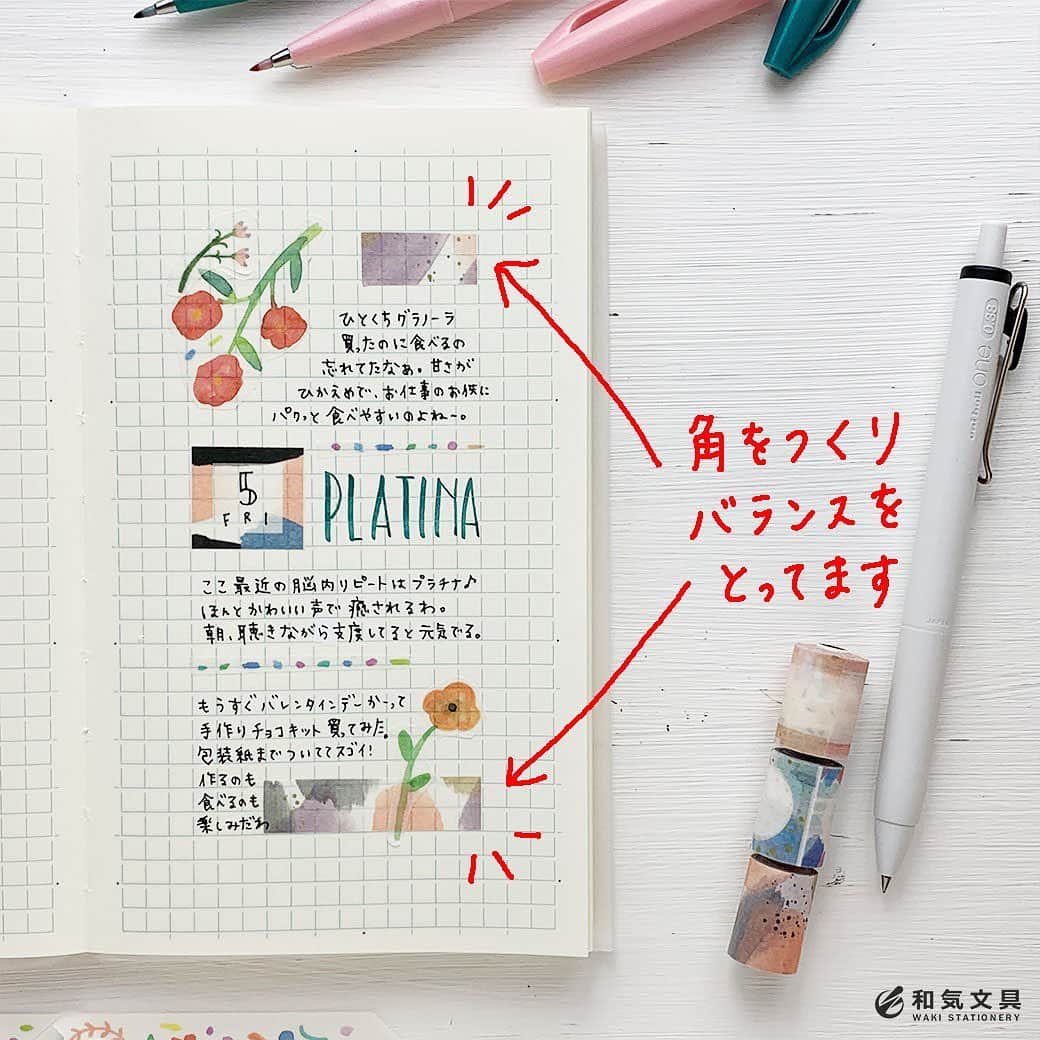 ひとくちグラノーラ
買ったのに食べるの
忘れてたなあ。甘さが
ひかえめで、お仕事のお供に
パクッと食べやすいのよね〜。
5
FRI
PLATINA
ここ最近の脳内リピートはプラチナ♪
ほんとかわいい声で癒されるわ。
朝、聴きながら支度してると元気でる。
もうすぐバレンタインデーかって
手作りチョコキット買ってみた。
包装紙までついててスゴイ!
作るのも
食べるのも
楽しみだわ
角をつくり
バランスを
とってます
uni-ball one 0.38
JAPAN
和気文具
WAKI STATIONERY